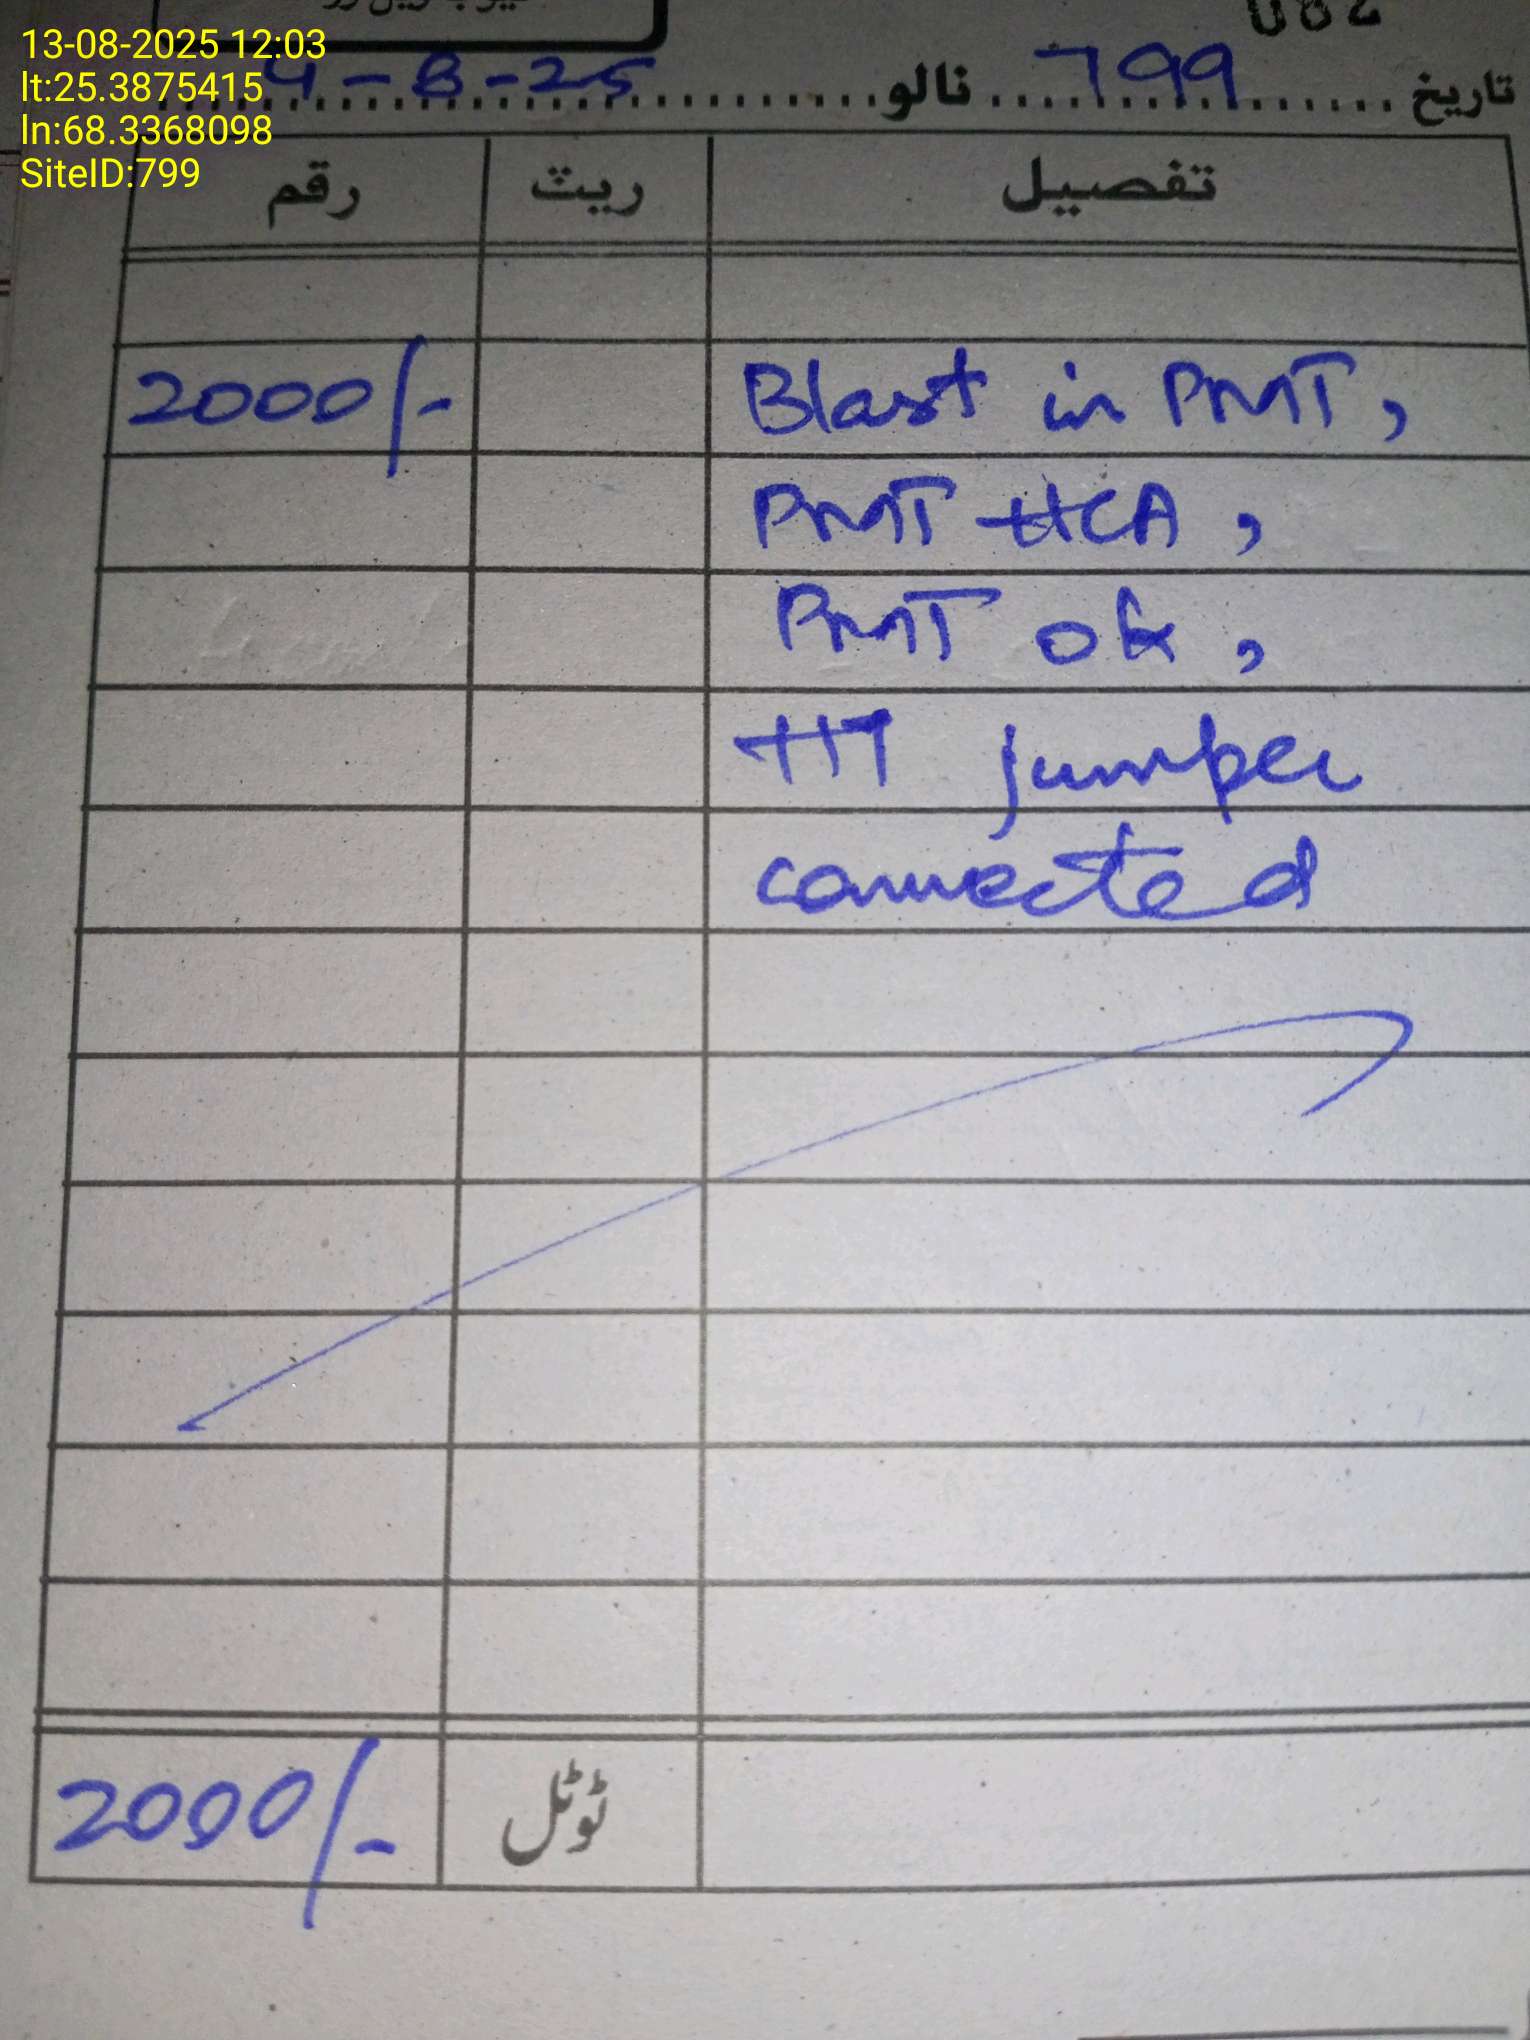 13-08-2025 12:03
lt:25.3875415
ln:68.3368098
SiteID:799
تاریخ 799 نالو 4-8-25
تفصیل ریٹ رقم
Blast in PMT, 2000/-
PMT HCA,
PMT ok,
HT jumper
connected
ٹوٹل 2000/-